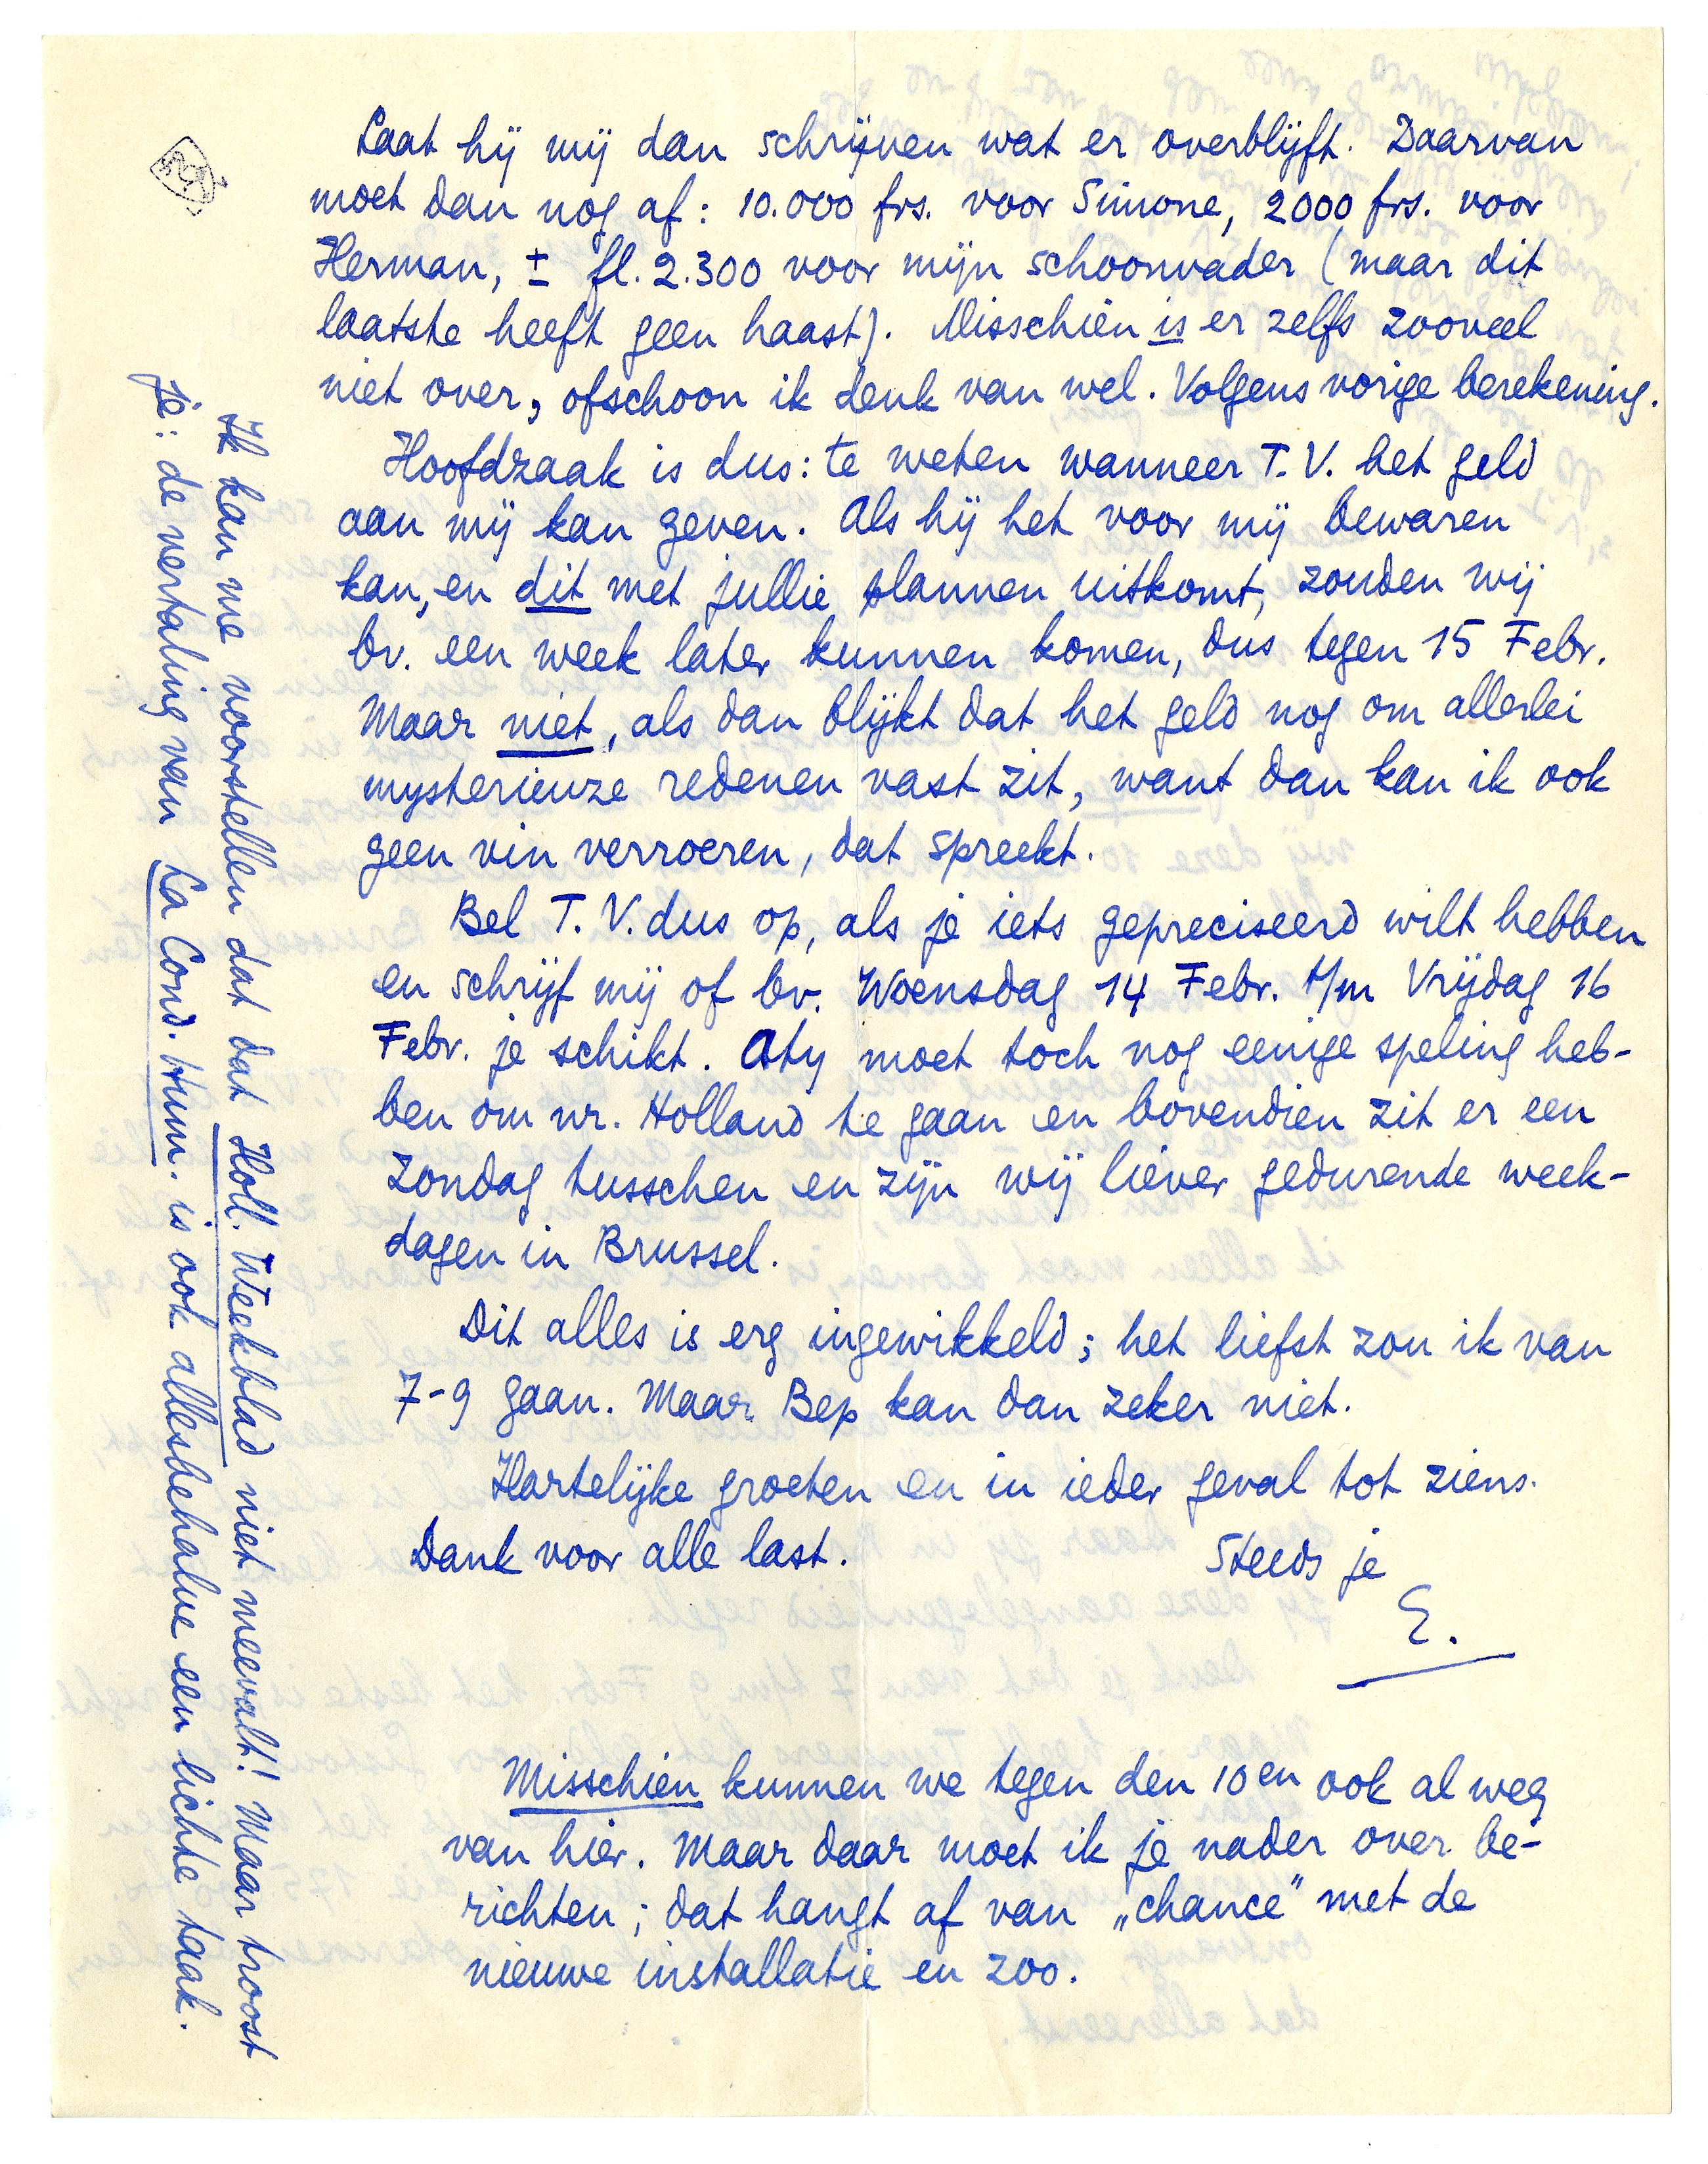 Laat hij mij dan schrijven wat er overblijft. Daarvan
moet dan nog af: 10.000 frs. voor Simone, 2000 frs. voor
Herman, ± fl. 2.300 voor mijn schoonvader (maar dit
laatste heeft geen haast). Misschien is er zelfs zooveel
niet over, ofschoon ik denk van wel. Volgens vorige berekening.
Hoofdzaak is dus: te weten wanneer T.V. het geld
aan mij kan geven. Als hij het voor mij bewaren
kan, en dit met jullie plannen uitkomt, zouden wij
bv. een week later kunnen komen, dus tegen 15 Febr.
Maar niet, als dan blijkt dat het geld nog om allerlei
mysterieuze redenen vast zit, want dan kan ik ook
geen vin verroeren, dat spreekt.
Bel T.V. dus op, als je iets gepreciseerd wilt hebben
en schrijf mij of bv. Woensdag 14 Febr. t/m Vrijdag 16
Febr. je schikt. Aty moet toch nog eenige speling heb-
ben om nr. Holland te gaan en bovendien zit er een
Zondag tusschen en zijn wij liever gedurende week-
dagen in Brussel.
Dit alles is erg ingewikkeld; het liefst zou ik van
7-9 gaan. Maar Bep kan dan zeker niet.
Hartelijke groeten en in ieder geval tot ziens.
Dank voor alle last.
Steeds je
E.
Misschien kunnen we tegen den 10en ook al weg
van hier. Maar daar moet ik je nader over be-
richten; dat hangt af van „chance" met de
nieuwe installatie en zoo.
Ik kan me voorstellen dat dat Holl. Weekblad niet meevalt! Maar troost
je: de vertaling van La Cond. Hum. is ook allesbehalve een lichte taak.